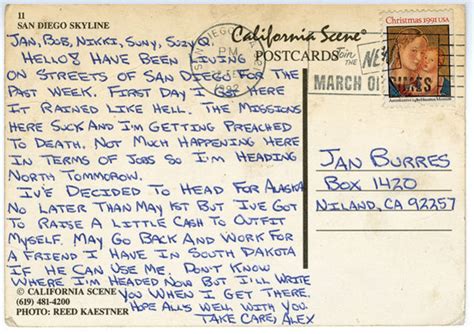 11
SAN DIEGO SKYLINE
California Scene®
POSTCARDS
Christmas 1991 USA
SAN DIEGO
PM
1992
Join the
NEW
MARCH OF DIMES
JAN, BOB, NIKKI, SUNY, SUZYQ
HELLO8 HAVE BEEN LIVING
ON STREETS OF SAN DIEGO FOR THE
PAST WEEK. FIRST DAY I GOT HERE
IT RAINED LIKE HELL. THE MISSIONS
HERE SUCK AND I'M GETTING PREACHED
TO DEATH. NOT MUCH HAPPENING HERE
IN TERMS OF JOBS SO I'M HEADING
NORTH TOMMOROW.
IV'E DECIDED TO HEAD FOR ALASKA
NO LATER THAN MAY 1ST BUT I'VE GOT
TO RAISE A LITTLE CASH TO OUTFIT
MYSELF. MAY GO BACK AND WORK FOR
A FRIEND I HAVE IN SOUTH DAKOTA
IF HE CAN USE ME. DON'T KNOW
WHERE I'M HEADED NOW BUT I'LL WRITE
YOU WHEN I GET THERE.
HOPE ALL'S WELL WITH YOU.
TAKE CARE, ALEX
JAN BURRES
BOX 1420
NILAND, CA 92257
© CALIFORNIA SCENE
(619) 481-4200
PHOTO: REED KAESTNER